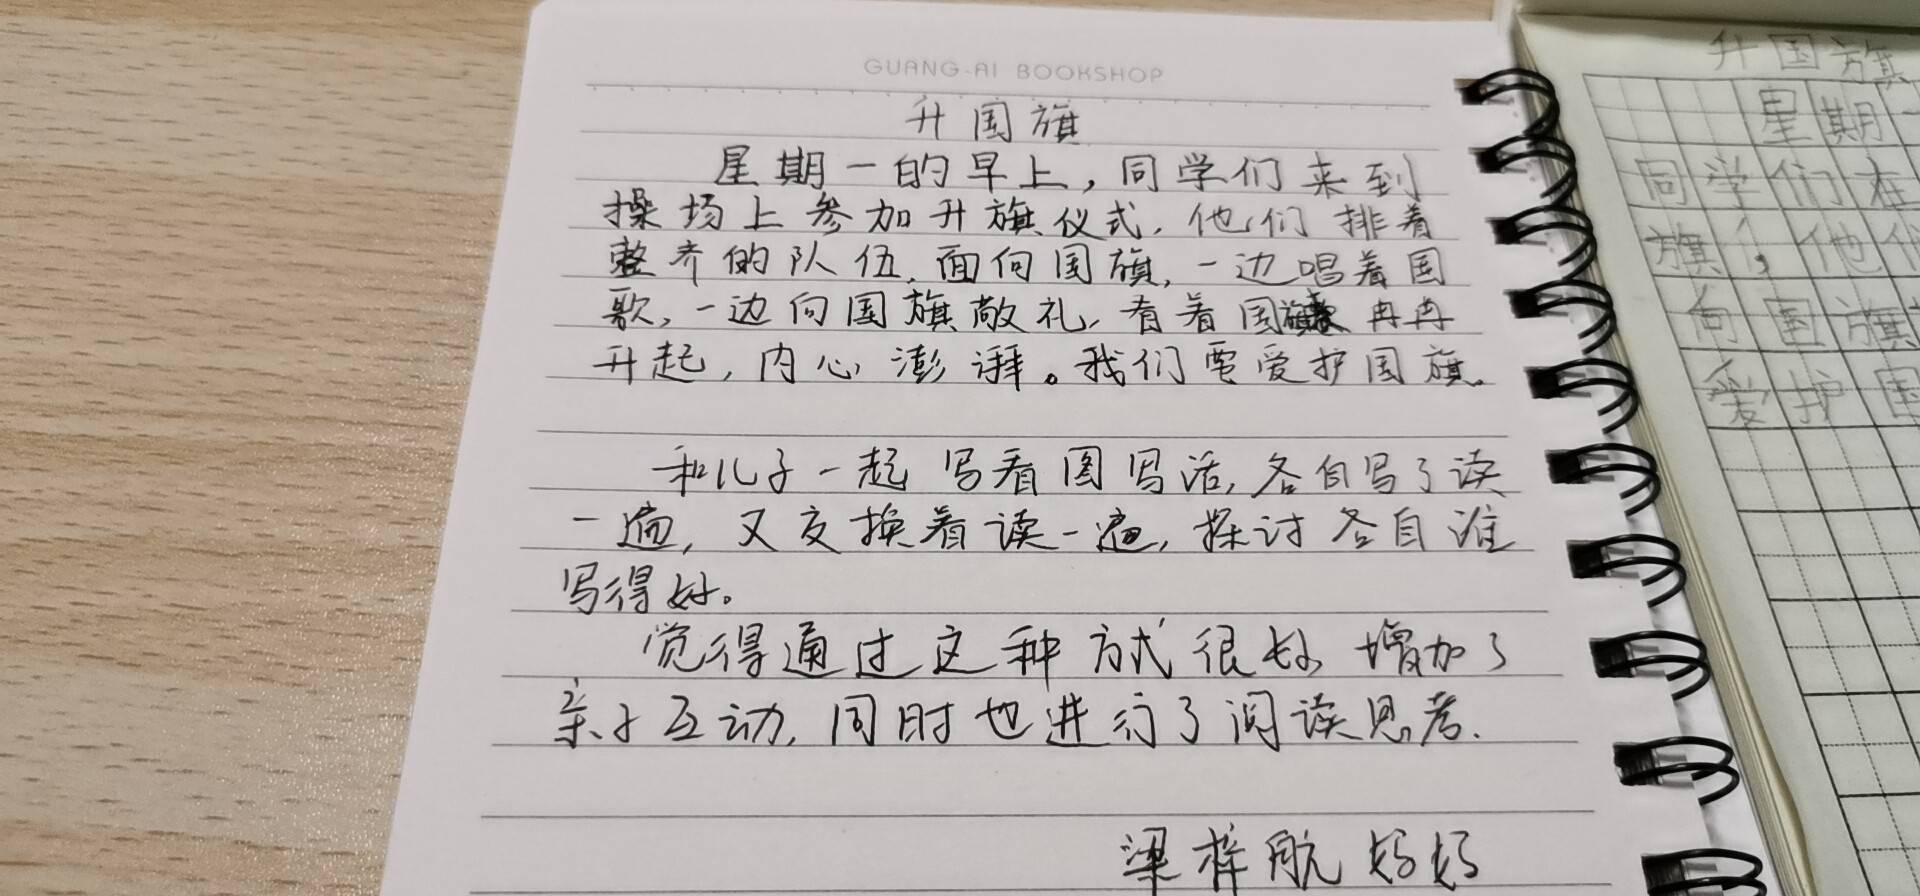 GUANG-AI BOOKSHOP
升国旗
星期一的早上,同学们来到
操场上参加升旗仪式,他们排着
整齐的队伍,面向国旗,一边唱着国
歌,一边向国旗敬礼,看着国旗冉冉
升起,内心澎湃。我们要爱护国旗。
和儿子一起写看图写话,各自写了读
一遍,又交换着读一遍,探讨各自谁
写得好。
觉得通过这种方式很好,增加了
亲子互动,同时也进行了阅读思考.
梁梓航妈妈
升国旗
星期
同学们在
旗,他们
向国旗
爱护国